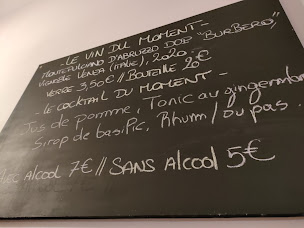 - LE VIN DU MOMENT -
MONTEPULCIANO D'ABRUZZO DOP "BURBERO",
VIGNOBLE VENEA (ITALIE), 2020 :
VERRE 3,50€ // BOUTEILLE 20€
- LE COCKTAIL DU MOMENT -
Jus de pomme, Tonic au gingembre
Sirop de basilic, Rhum / ou pas.
AVEC ALCOOL 7€ // SANS ALCOOL 5€